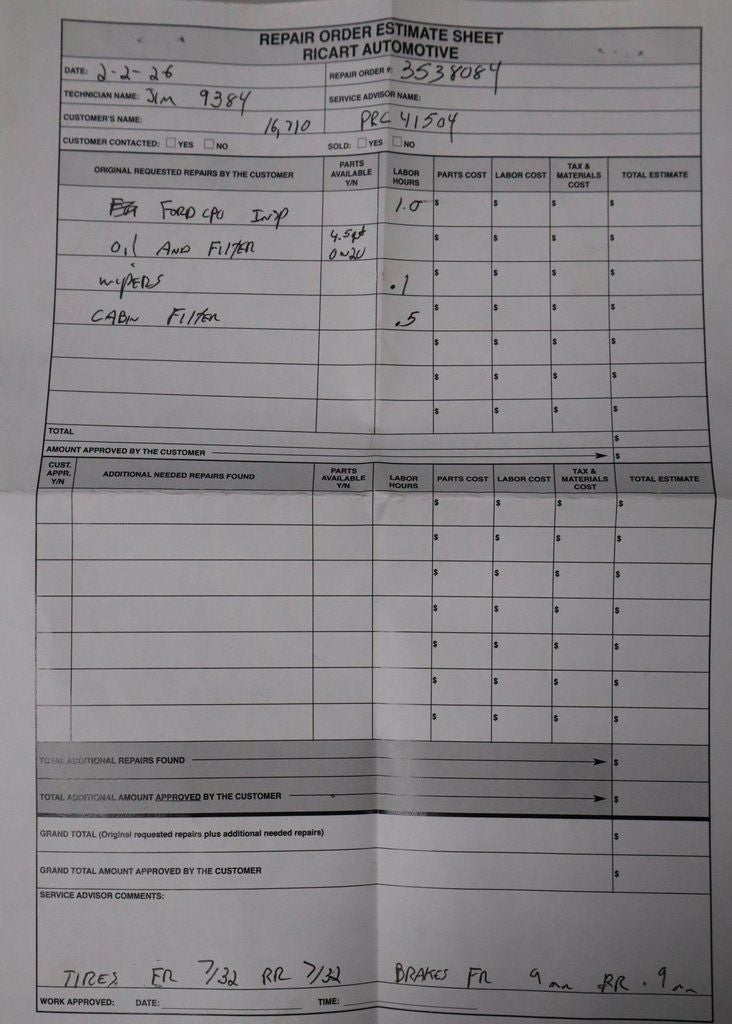 REPAIR ORDER ESTIMATE SHEET
RICART AUTOMOTIVE
DATE: 2-2-26 REPAIR ORDER #: 3538084
TECHNICIAN NAME: Jim 9384 SERVICE ADVISOR NAME:
CUSTOMER'S NAME: 16,710 PRC 41504
CUSTOMER CONTACTED: YES NO SOLD: YES NO
ORIGINAL REQUESTED REPAIRS BY THE CUSTOMER PARTS AVAILABLE Y/N LABOR HOURS PARTS COST LABOR COST TAX & MATERIALS COST TOTAL ESTIMATE
FORD CPO INSP 1.0 $ $ $ $
OIL AND FILTER 4.5qt 0W20 $ $ $ $
WIPERS .1 $ $ $ $
CABIN FILTER .5 $ $ $ $
$ $ $ $
$ $ $ $
$ $ $ $
TOTAL $
AMOUNT APPROVED BY THE CUSTOMER $
CUST. APPR. Y/N ADDITIONAL NEEDED REPAIRS FOUND PARTS AVAILABLE Y/N LABOR HOURS PARTS COST LABOR COST TAX & MATERIALS COST TOTAL ESTIMATE
$ $ $ $
$ $ $ $
$ $ $ $
$ $ $ $
$ $ $ $
$ $ $ $
$ $ $ $
TOTAL ADDITIONAL REPAIRS FOUND $
TOTAL ADDITIONAL AMOUNT APPROVED BY THE CUSTOMER $
GRAND TOTAL (Original requested repairs plus additional needed repairs) $
GRAND TOTAL AMOUNT APPROVED BY THE CUSTOMER $
SERVICE ADVISOR COMMENTS:
TIRES FR 7/32 RR 7/32 BRAKES FR 9mm RR. 9mm
WORK APPROVED: DATE: TIME: